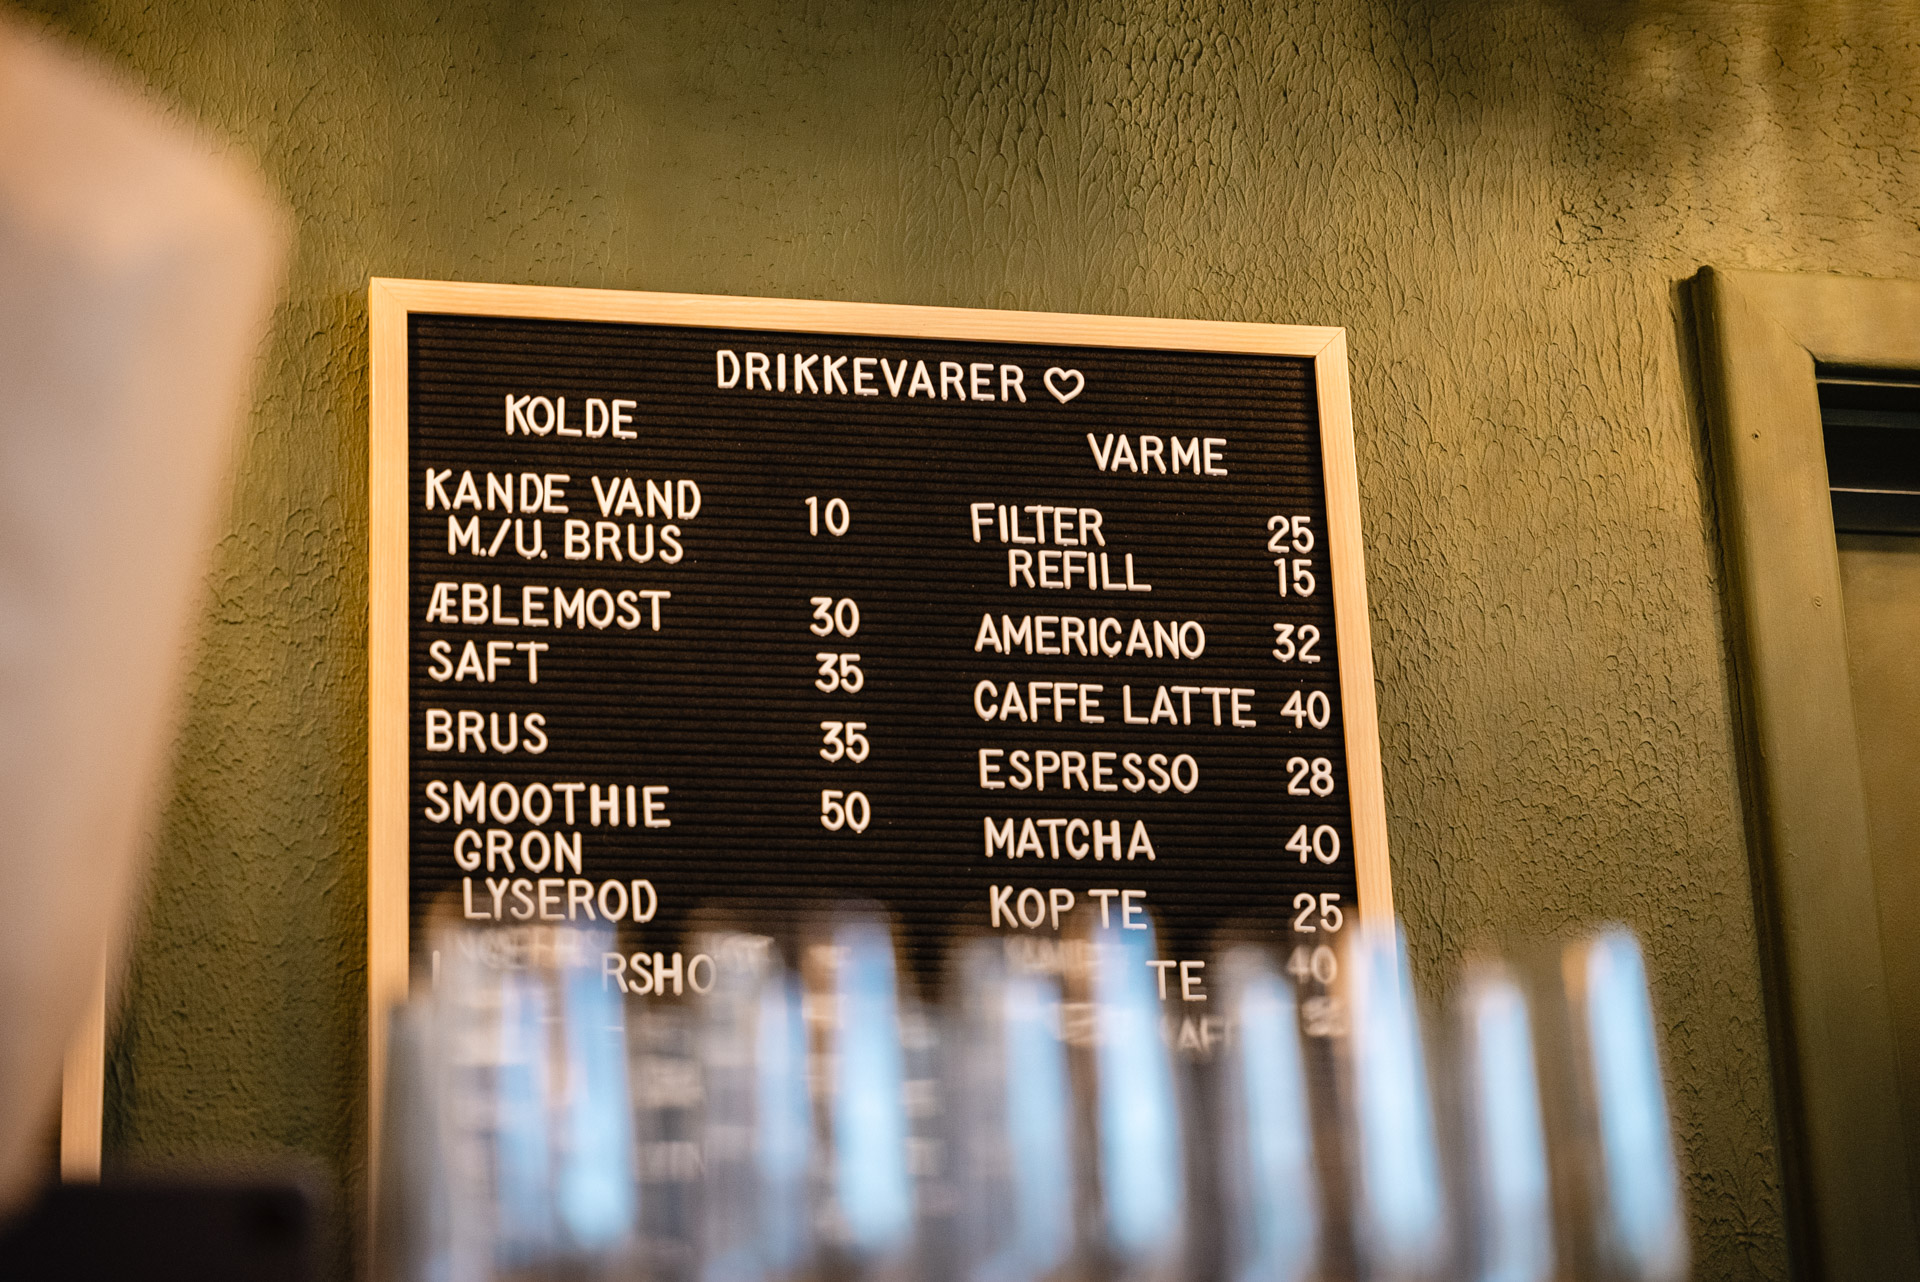 DRIKKEVARER ♡
KOLDE
KANDE VAND 10
M./U. BRUS
ÆBLEMOST 30
SAFT 35
BRUS 35
SMOOTHIE 50
GRON
LYSEROD
VARME
FILTER 25
REFILL 15
AMERICANO 32
CAFFE LATTE 40
ESPRESSO 28
MATCHA 40
KOP TE 25
TE 40